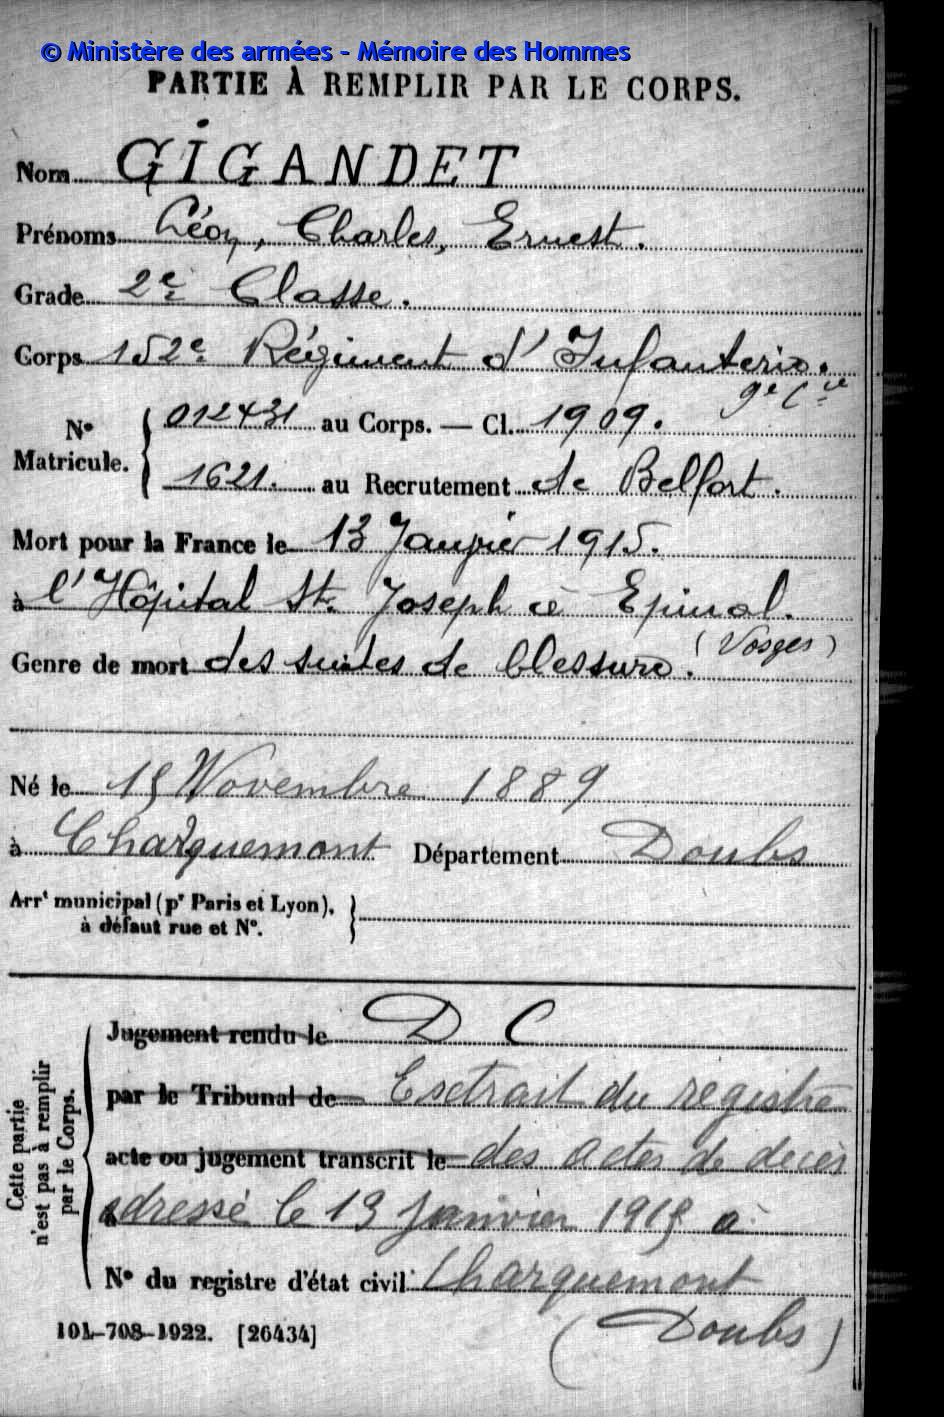 © Ministère des armées - Mémoire des Hommes
PARTIE À REMPLIR PAR LE CORPS.
Nom GIGANDET
Prénoms Léon, Charles, Ernest.
Grade 2e Classe.
Corps 152e Régiment d'Infanterie.
9e Cie
N° Matricule. 012431 au Corps. — Cl. 1909.
1621. au Recrutement de Belfort.
Mort pour la France le 13 Janvier 1915.
à l'Hôpital St. Joseph à Epinal.
(Vosges)
Genre de mort des suites de blessure.
Né le 15 Novembre 1889
à Charquemont Département Doubs
Arrt municipal (pr Paris et Lyon),
à défaut rue et N°.
Cette partie
n'est pas à remplir
par le Corps.
Jugement rendu le D C
par le Tribunal de Extrait du registre
acte ou jugement transcrit le des actes de décès
adressé le 13 Janvier 1915 à
N° du registre d'état civil Charquemont
101-708-1922. [26434] (Doubs)